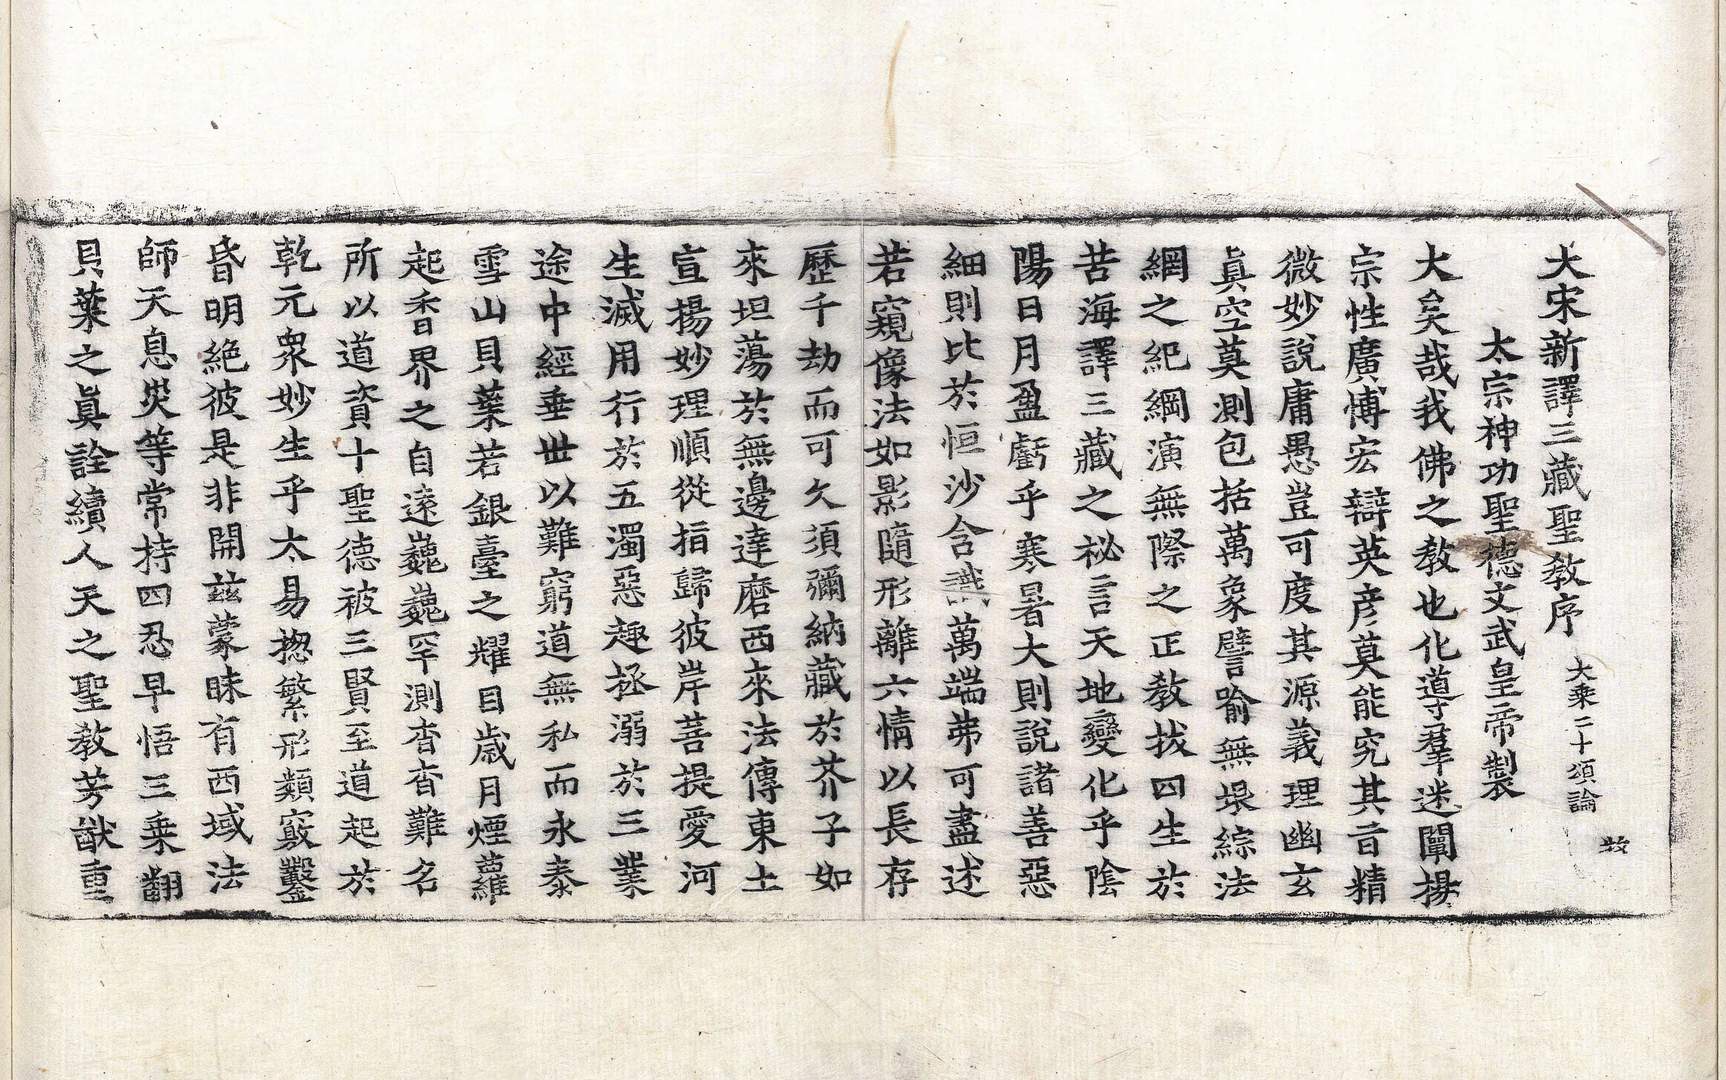 大宋新譯三藏聖敎序 大乘二十頌論
太宗神功聖德文武皇帝製
大矣哉我佛之敎也化導羣迷闡揚
宗性廣博宏辯英彦莫能究其旨精
微妙說庸愚豈可度其源義理幽玄
眞空莫測包括萬象譬喻無垠綜法
網之紀綱演無際之正敎拔四生於
苦海譯三藏之祕言天地變化乎陰
陽日月盈虧乎寒暑大則說諸善惡
細則比於恒沙含識萬端弗可盡述
若窺像法如影隨形離六情以長存
歷千劫而可久須彌納藏於芥子如
來坦蕩於無邊達磨西來法傳東土
宣揚妙理順從指歸彼岸菩提愛河
生滅用行於五濁惡趣拯溺於三業
途中經垂世以難窮道無私而永泰
雪山貝葉若銀臺之耀目歲月煙蘿
起香界之自遠巍巍罕測杳杳難名
所以道資十聖德被三賢至道起於
乾元衆妙生乎太易揔繁形類竅鑿
昏明絶彼是非開兹蒙昧有西域法
師天息灾等常持四忍早悟三乘翻
貝葉之眞詮續人天之聖敎芳猷重